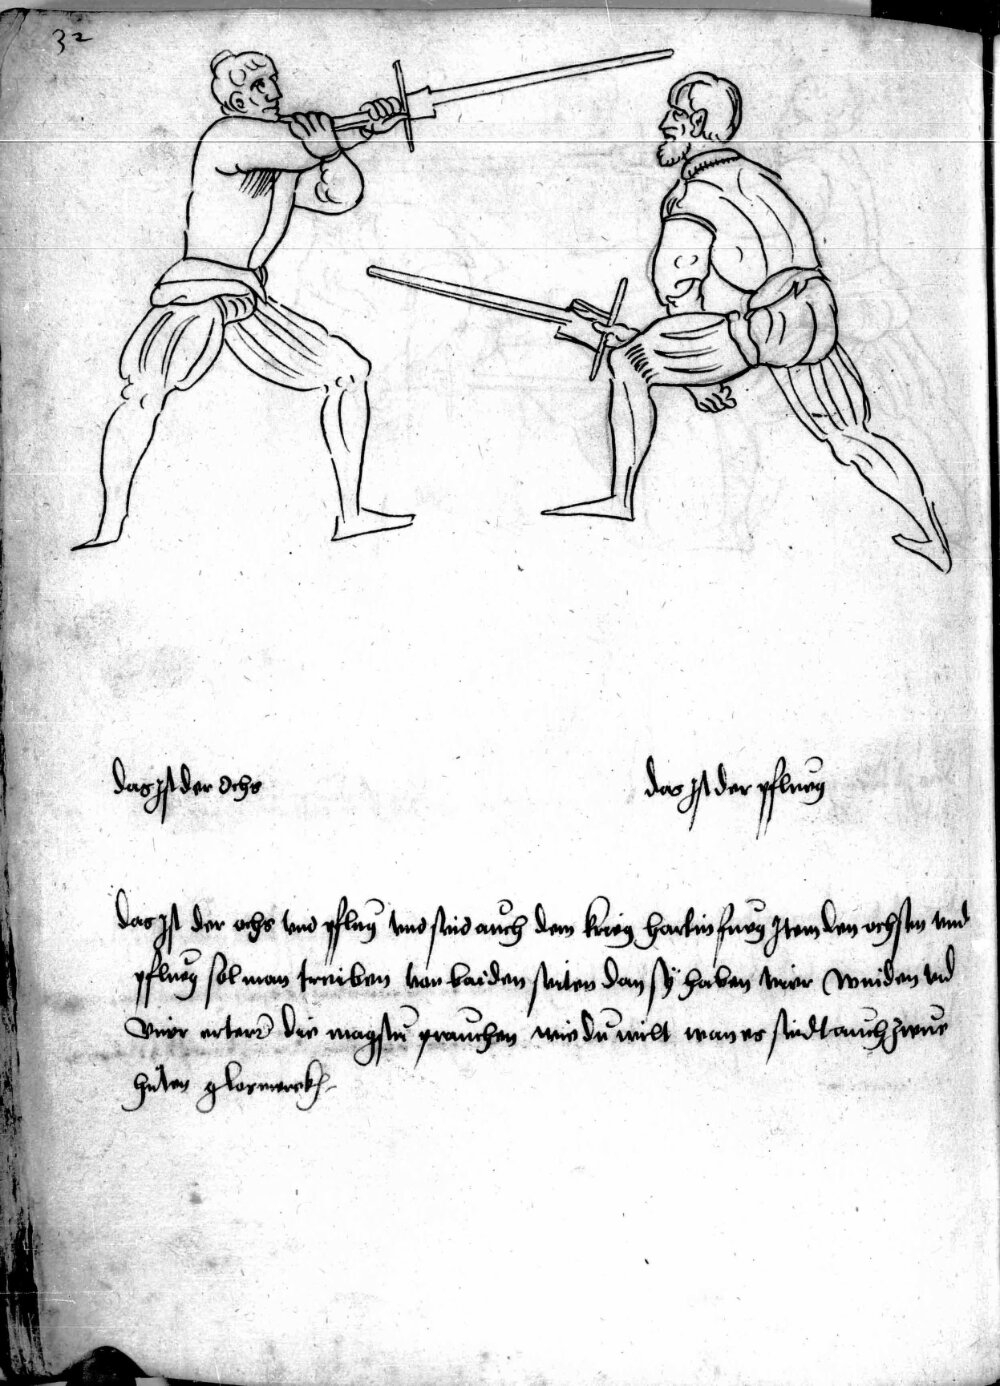 32
das Ist der Ochs
das Ist der pflueg
das Ist der ochs vnd pflug vnd sind auch dem krieg Item den ochsen vnd
pflueg sol man treiben von baiden seiten dan sÿ haben vier winden vnd
vier die magstu prauchen wie du wilt wan es sindt auch zwue
hůten